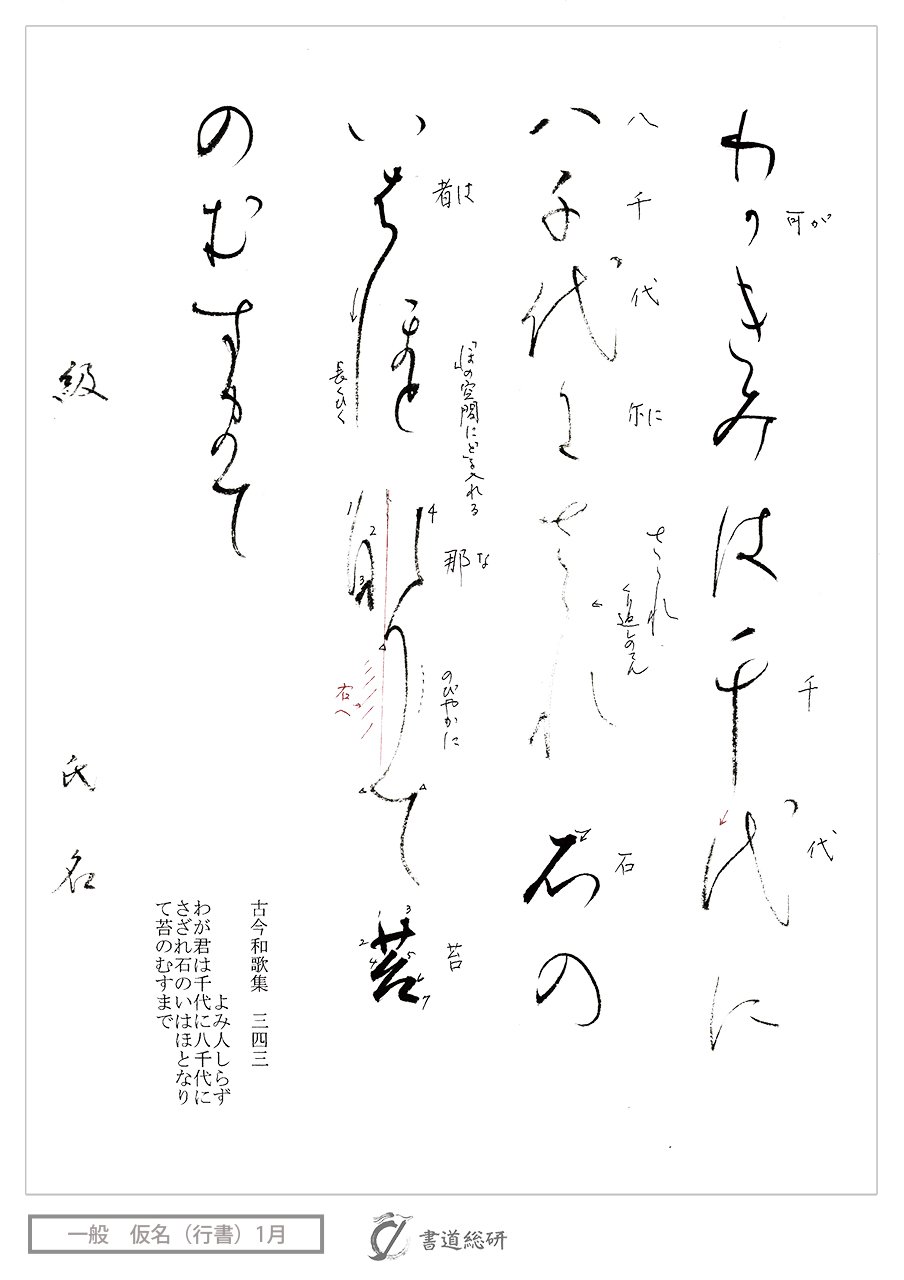 わ可きみは千代に
可が
千
代
八千代尓さゝれ石の
八
千
代
尓に
さゝれ
くり返しのてん
石
い者ほと那りて苔
者は
「ほ」の空間に「と」を入れる
長くひく
1
2
3
4
那な
のびやかに
右へ
1
2
3
4
5
6
7
苔
のむすまて
級
氏名
古今和歌集　三四三
よみ人しらず
わが君は千代に八千代に
さざれ石のいはほとなり
て苔のむすまで
一般　仮名（行書）1月
書道総研